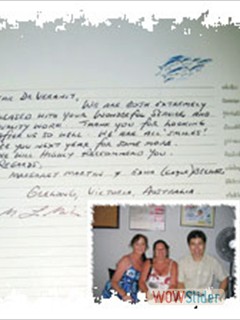 We are both extremely
pleased with your wonderful service and
quality work. Thank you for looking
after us so well. We are all smiles!
See you next year for some more.
We will highly recommend you.
Regards,
Margaret Martin &
Geelong, Victoria, Australia.
WOWSlider